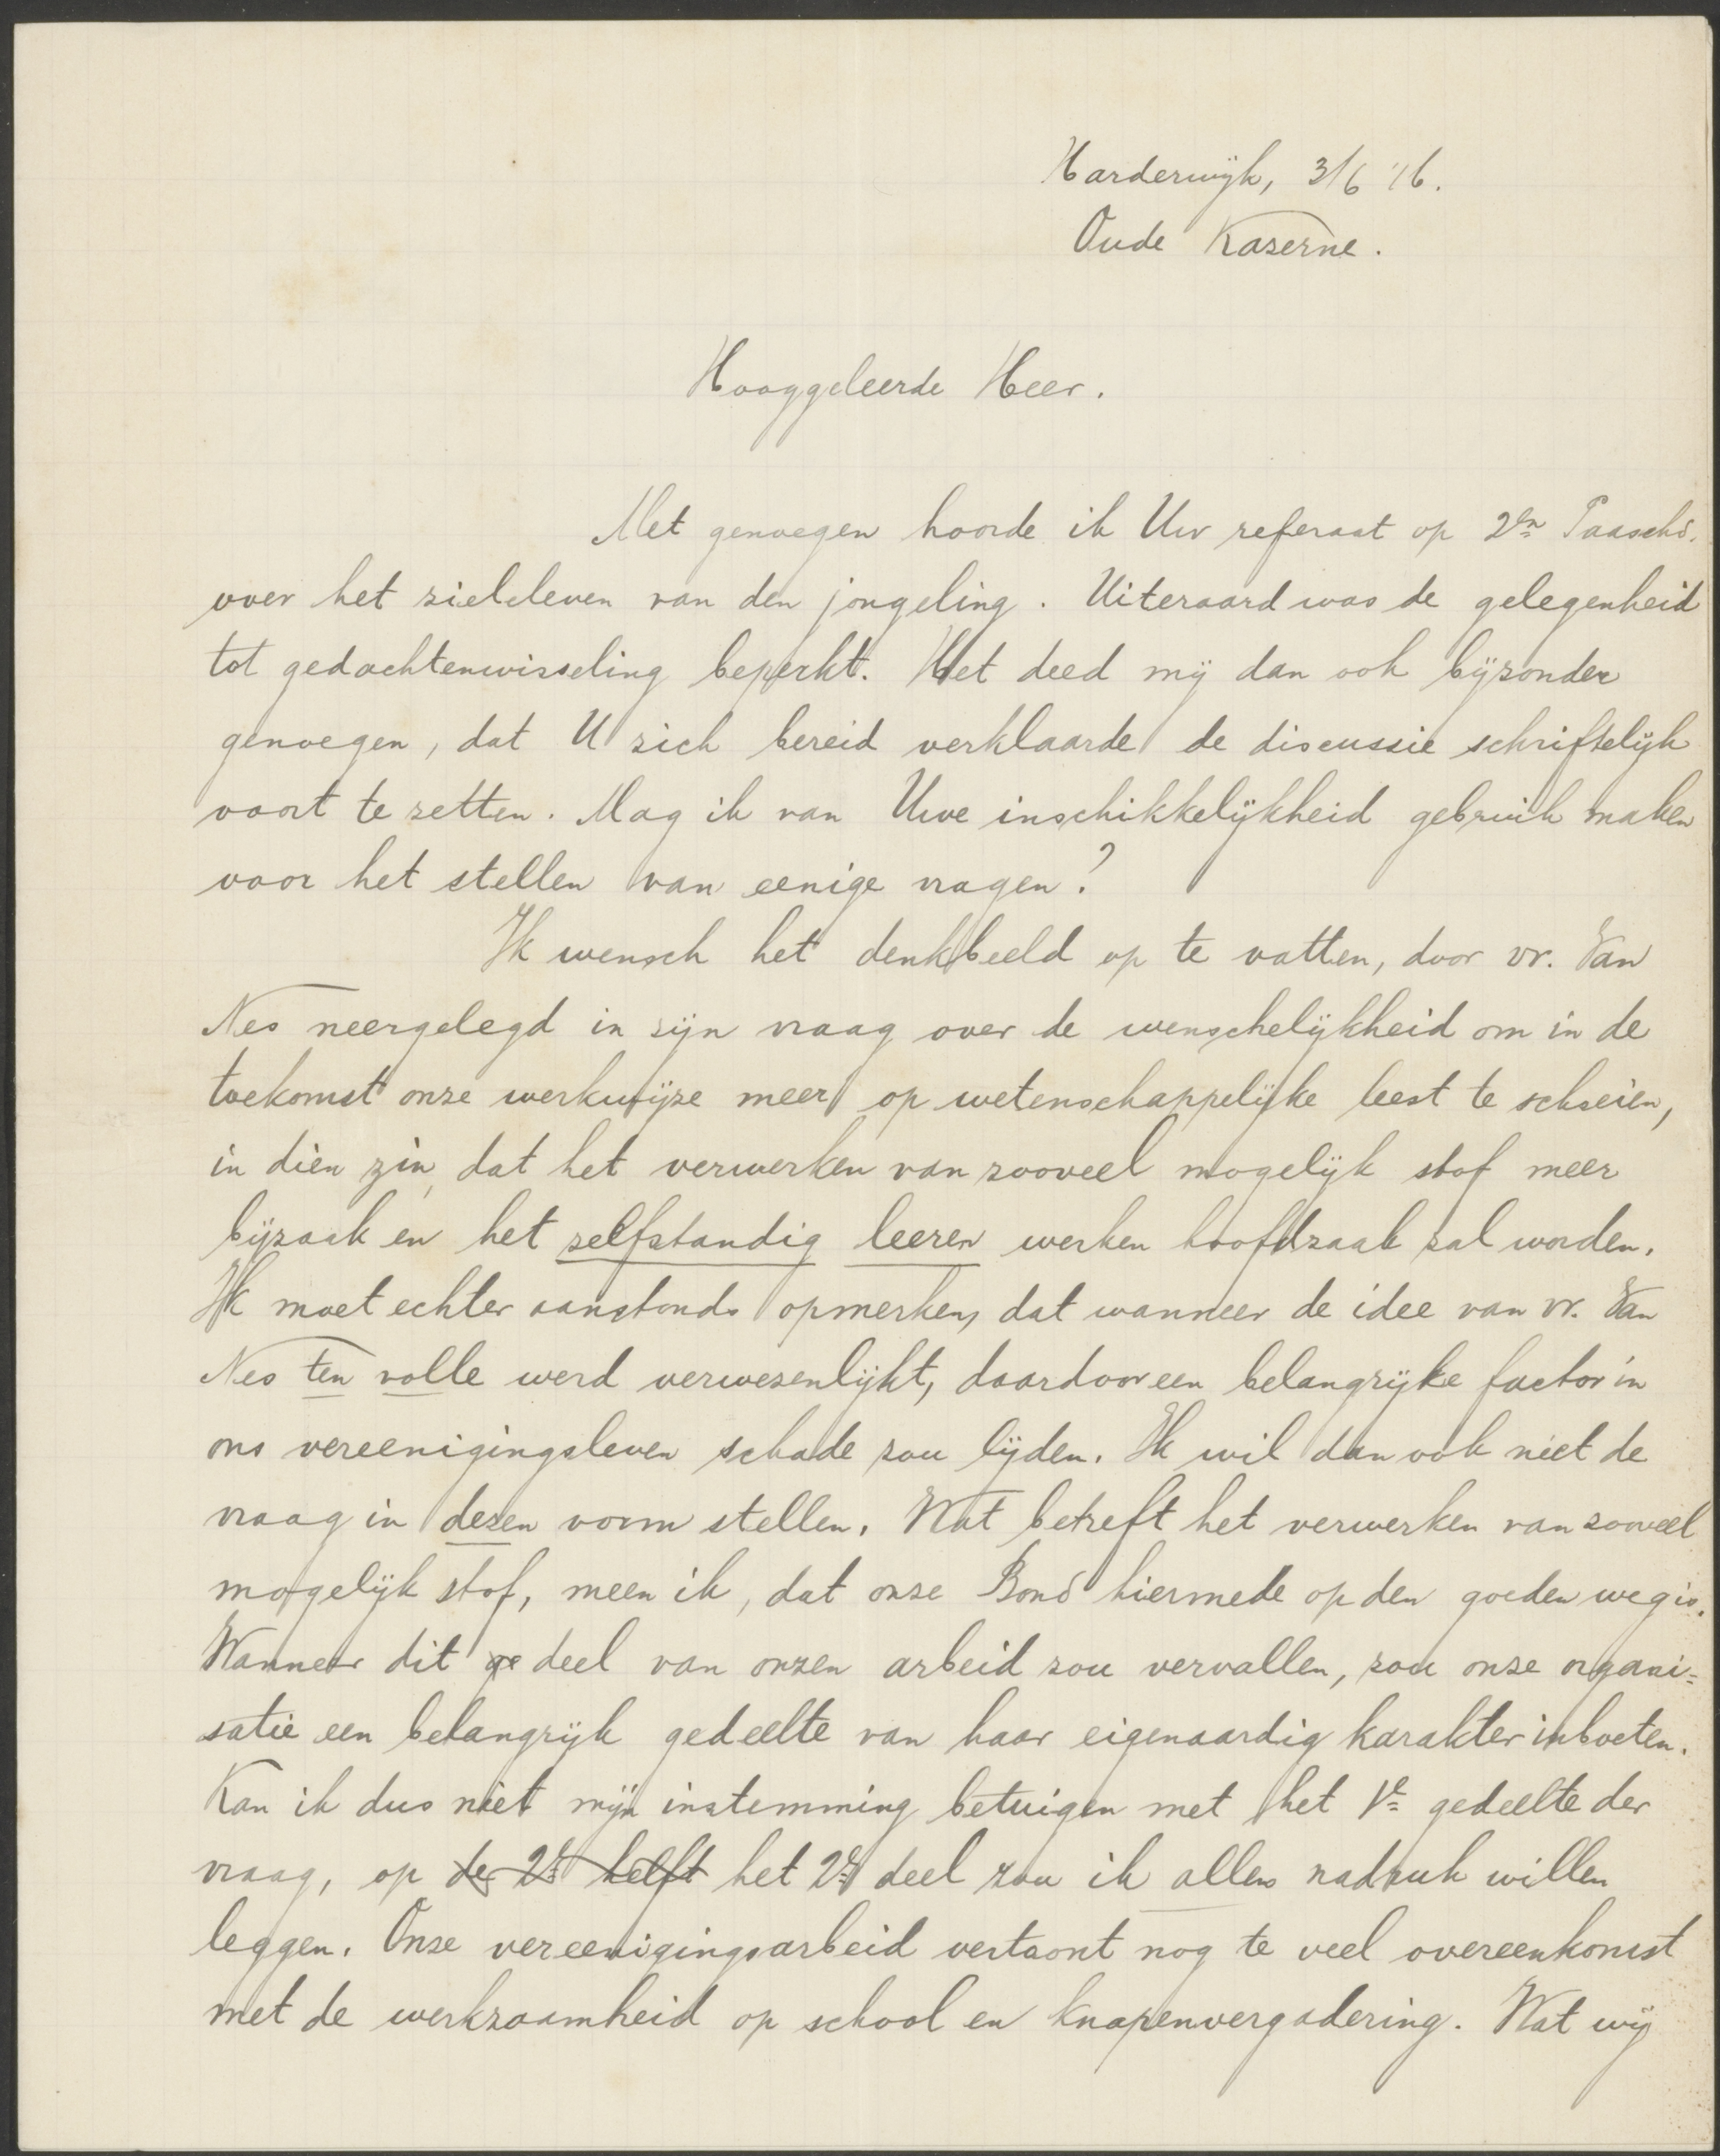 Harderwijk, 3/6 '16.
Oude Kazerne.
Hooggeleerde Heer.
Met genoegen hoorde ik Uw referaat op 2en Paaschd.
over het zieleleven van den jongeling. Uiteraard was de gelegenheid
tot gedachtenwisseling beperkt. Het deed mij dan ook bijzonder
genoegen, dat U zich bereid verklaarde de discussie schriftelijk
voort te zetten. Mag ik van Uwe inschikkelijkheid gebruik maken
voor het stellen van eenige vragen?
Ik wensch het denkbeeld op te vatten, door vr. Van
Nes neergelegd in zijn vraag over de wenschelijkheid om in de
toekomst onze werkwijze meer op wetenschappelijke leest te schoeien,
in dien zin, dat het verwerken van zooveel mogelijk stof meer
bijzaak en het zelfstandig leeren werken hoofdzaak zal worden.
Ik moet echter aanstonds opmerken, dat wanneer de idee van vr. Van
Nes ten volle werd verwezenlijkt, daardoor een belangrijke factor in
ons vereenigingsleven schade zou lijden. Ik wil dan ook niet de
vraag in dezen vorm stellen. Wat betreft het verwerken van zooveel
mogelijk stof, meen ik, dat onze Bond hiermede op den goeden weg is.
Wanneer dit ge deel van onzen arbeid zou vervallen, zou onze organi=
satie een belangrijk gedeelte van haar eigenaardig karakter inboeten.
Kan ik dus niet mijn instemming betuigen met het 1e gedeelte der
vraag, op de 2e helft het 2e deel zou ik allen nadruk willen
leggen. Onze vereenigingsarbeid vertoont nog te veel overeenkomst
met de werkzaamheid op school en knapenvergadering. Wat wij